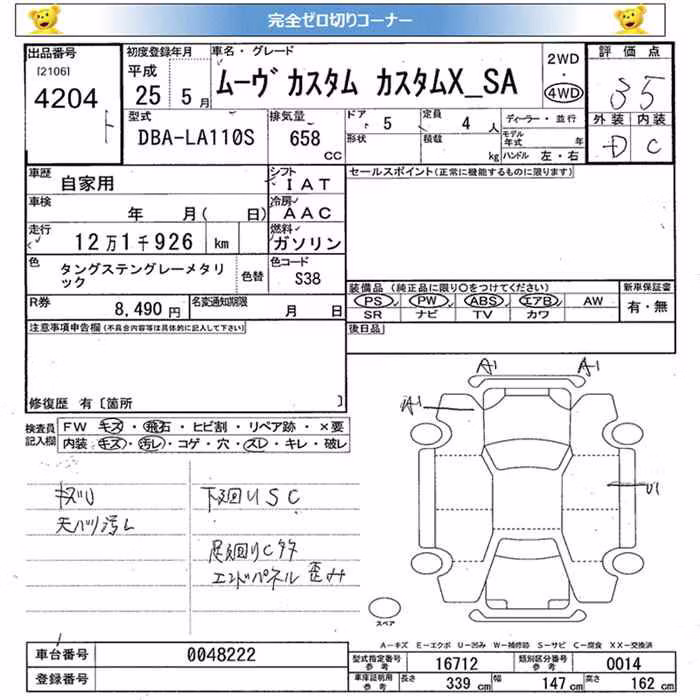 完全ゼロ切りコーナー
出品番号
[2106]
4204
初度登録年月
平成
25 5月
車名・グレード
ムーヴ カスタム カスタムX_SA
2WD
・
4WD
評価点
3.5
外装 内装
D C
型式
DBA-LA110S
排気量
658
CC
ドア 5
形状
定員 4 人
積載 kg
ディーラー・並行
モデル年式 年
ハンドル 左・右
車歴
自家用
シフト
IAT
車検
年 月( 日)
冷房
AAC
走行
12万1千926 km
燃料
ガソリン
色
タングステングレーメタリック
色替
色コード
S38
R券
8,490 円
名変通知期限
月 日
セールスポイント(正常に機能するものに限ります)
装備品 (純正品に限り○をつけてください)
PS PW ABS エアB AW
SR ナビ TV カワ
新車保証書
有・無
後日品
注意事項申告欄(不具合内容等は具体的に記入して下さい)
修復歴 有〔箇所 〕
検査員記入欄
FW キズ・飛石・ヒビ割・リペア跡・×要
内装・キズ・汚レ・コゲ・穴・スレ・キレ・破レ
天バリ汚レ
下廻りSC
足廻りCタタ
エンドパネル 歪み
A1 A1
A1
U1
スペア
A-キズ E-エクボ U-凹み W-補修跡 S-サビ C-腐食 XX-交換済
車台番号
0048222
登録番号
型式指定番号 参考
16712
類別区分番号 参考
0014
車庫証明用 参考
長さ 339 cm 幅 147 cm 高さ 162 cm